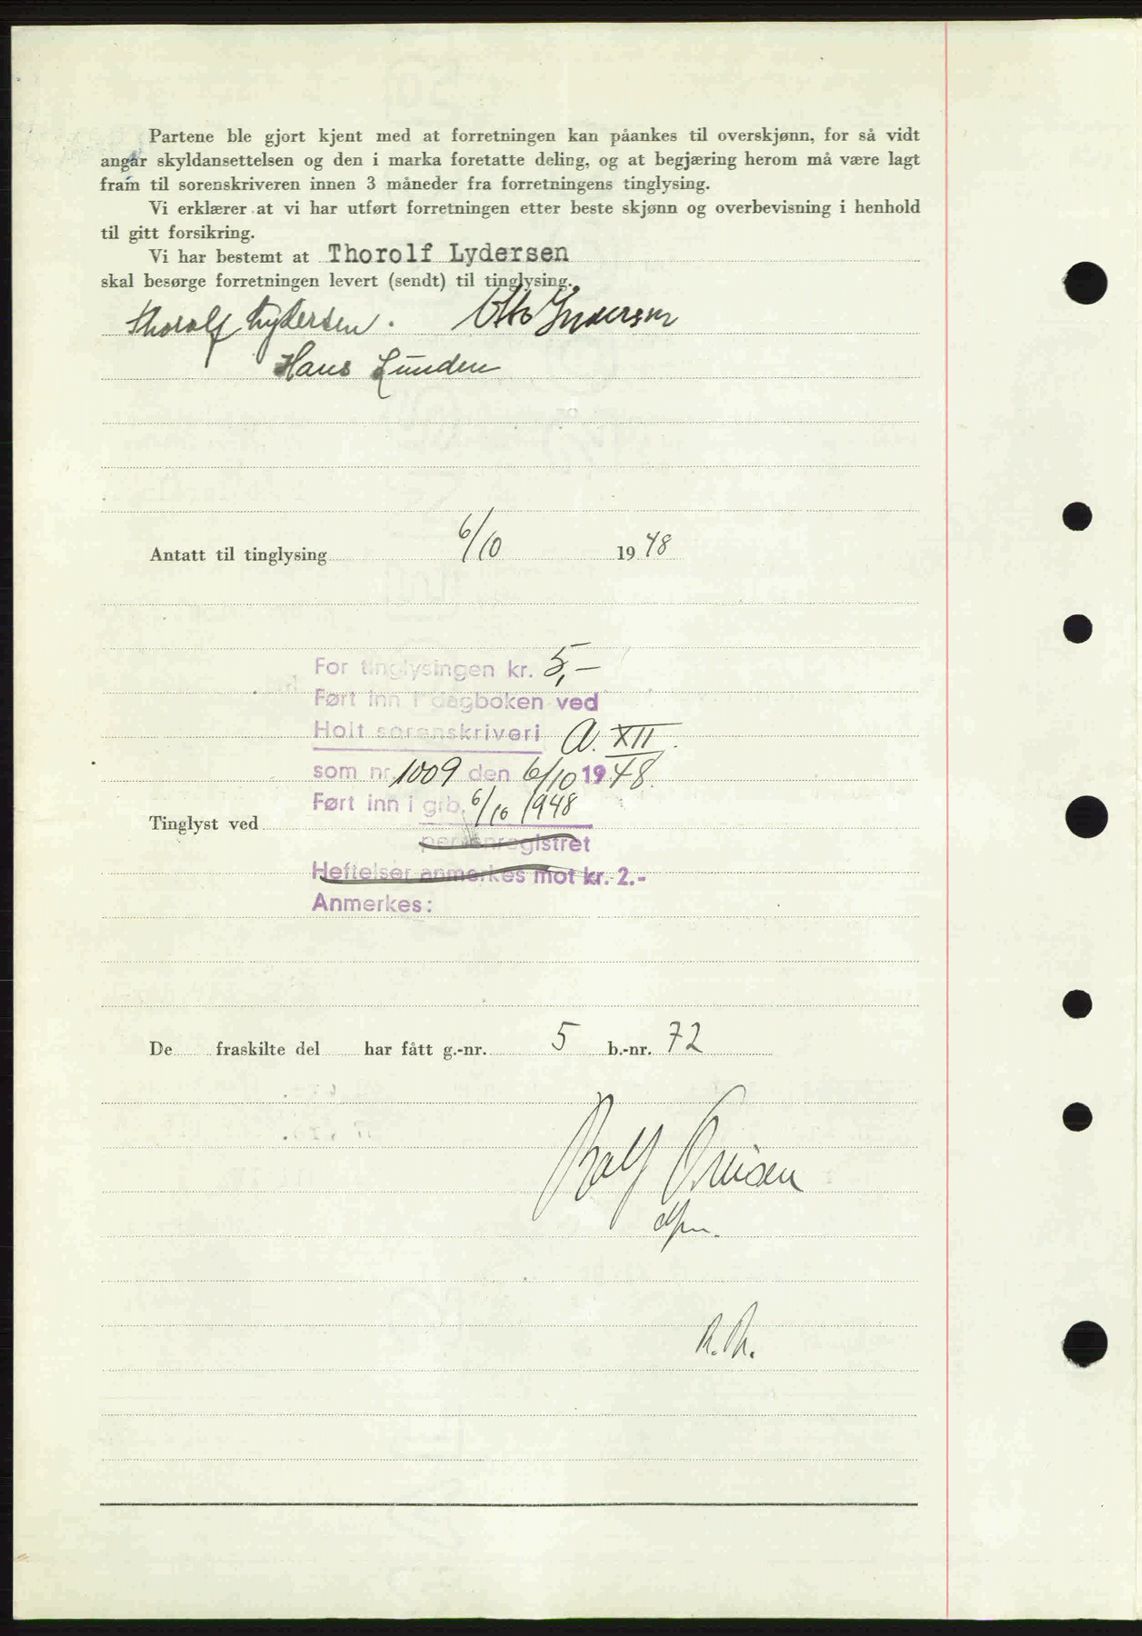 Partene ble gjort kjent med at forretningen kan påankes til overskjønn, for så vidt
angår skyldansettelsen og den i marka foretatte deling, og at begjæring herom må være lagt
fram til sorenskriveren innen 3 måneder fra forretningens tinglysing.
Vi erklærer at vi har utført forretningen etter beste skjønn og overbevisning i henhold
til gitt forsikring.
Vi har bestemt at Thorolf Lydersen
skal besørge forretningen levert (sendt) til tinglysing.
Thorolf Lydersen. Otto
Hans Lunden
Antatt til tinglysing 6/10 1948
For tinglysingen kr. 5,-
Ført inn i dagboken ved
Holt sorenskriveri A. XII.
som nr. 1009 den 6/10 1948.
Ført inn i grb. 6/10 1948
Tinglyst ved
personregistret
Heftelser anmerkes mot kr. 2.-
Anmerkes:
De fraskilte del har fått g.-nr. 5 b.-nr. 72
Rolf